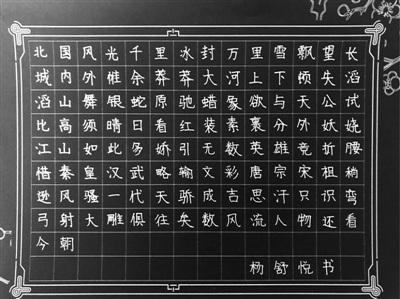 北国风光千里冰封万里雪飘望长
城内外惟余莽莽大河上下顿失滔
滔山舞银蛇原驰蜡象欲与天公试
比高须晴日看红装素裹分外妖娆
江山如此多娇引无数英雄竞折腰
惜秦皇汉武略输文彩唐宗宋祖稍
逊风骚一代天骄成吉思汗只识弯
弓射大雕俱往矣数风流人物还看
今朝
杨舒悦书